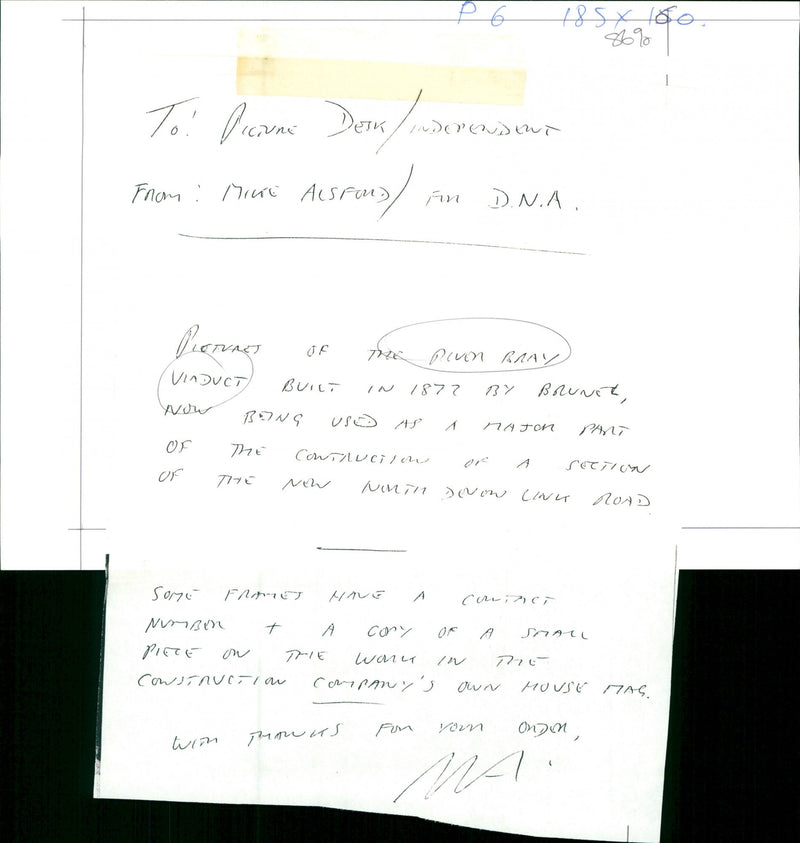 P6 185 x 150.
86%
To: Picture Desk/Independent
From: Mike Alsford/for D.N.A.
Pictures of the River Bray
Viaduct built in 1872 by Brunel,
now being used as a major part
of the contruction of a section
of the new North Devon Link Road
Some frames have a contact
number + a copy of a small
piece on the work in the
construction company's own house mag.
With thanks for your order,
MA.